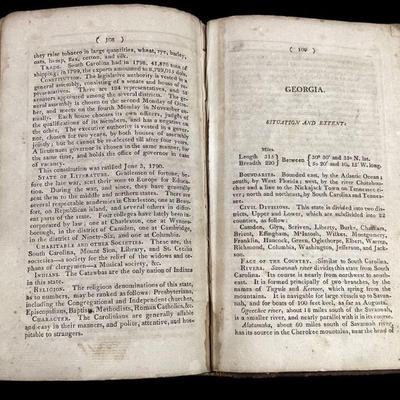 ( 108 )
they raise tobacco in large quantities, wheat, rye, barley,
oats, hemp, flax, cotton, and silk.
TRADE. South Carolina had in 1798, 41,876 tons of
shipping; in 1799, the exports amounted to 8,729,015 dols.
CONSTITUTION. The legislative authority is vested in a
general assembly, consisting of a senate and house of re-
presentatives. There are 124 representatives, and
senators apportioned among the several districts. The gen-
eral assembly is chosen on the second Monday of Octo-
ber, and meets on the fourth Monday in November an-
nually. Each house chooses its own officers, judges of
the qualifications of its members, and has a negative on
the other. The executive authority is vested in a gover-
nor, chosen for two years, by both houses of assembly
jointly; but he cannot be re-elected till after four years.
A lieutenant governor is chosen in the same manner, for
the same time, and holds the office of governor in case
of vacancy.
This constitution was ratified June 3, 1790.
STATE OF LITERATURE. Gentlemen of fortune, be-
fore the late war, sent their sons to Europe for educa-
tion. During the war, and since, they have generally
sent them to the middle and northern states. There are
several respectable academies in Charleston, one at Beau-
fort, on Republican island, and several others in differ-
ent parts of the state. Four colleges have lately been in-
corporated, one at Charleston, one at Winnsborough,
in the district of Camden, one at Cambridge,
in the district of Ninety-Six, and one at Columbia.
CHARITABLE AND OTHER SOCIETIES. These are, the
South Carolina, Mount Sion, Library, and St. Cecilia
societies—a society for the relief of the widows and or-
phans of clergymen—a Musical society, &c.
INDIANS. The Catawbas are the only nation of Indians
in this state.
RELIGION. The religious denominations of this state,
as to numbers, may be ranked as follows: Presbyterians,
including the Congregational and Independent churches,
Episcopalians, Baptists, Methodists, Roman Catholics, &c.
CHARACTER. The Carolinians are generally affable
and easy in their manners, and polite, attentive, and hos-
pitable to strangers.
( 109 )
GEORGIA.
SITUATION AND EXTENT.
Miles.
Length 315
Breadth 250
Between
30° 30' and 35° N. lat.
5° and 10°, 15' W. long.
BOUNDARIES. Bounded east, by the Atlantic Ocean;
south, by West Florida; west, by the river Chatahou-
chee and a line to the Nickajack Town on Tennessee riv-
er; north and northeast, by South Carolina and Tennes-
see.
CIVIL DIVISIONS. This state is divided into two dis-
tricts, Upper and Lower, which are subdivided into 22
counties, as follows:
Camden, Glyn, Scriven, Liberty, Burke, Chatham,
Bryant, Effingham, M'Intosh, Wilkes, Lincoln, Elbert,
Franklin, Hancock, Green, Oglethorpe, Warren,
Richmond, Columbia, Washington, Jefferson, and Jack-
son.
FACE OF THE COUNTRY. Similar to South Carolina.
RIVERS. Savannah river divides this state from South
Carolina. Its course is nearly from northwest to south-
east. It is formed principally of two branches, by the
names of Tugulo and Keowee, which spring from the
mountains. It is navigable for large vessels up to Savan-
nah, and for boats of 100 feet keel, as far as Augusta.
Ogeechee river, about 18 miles south of the Savannah,
is a smaller river, and nearly parallel with it in its course.
Alatamaha, about 60 miles south of Savannah river,
has its source in the Cherokee mountains, near the head of